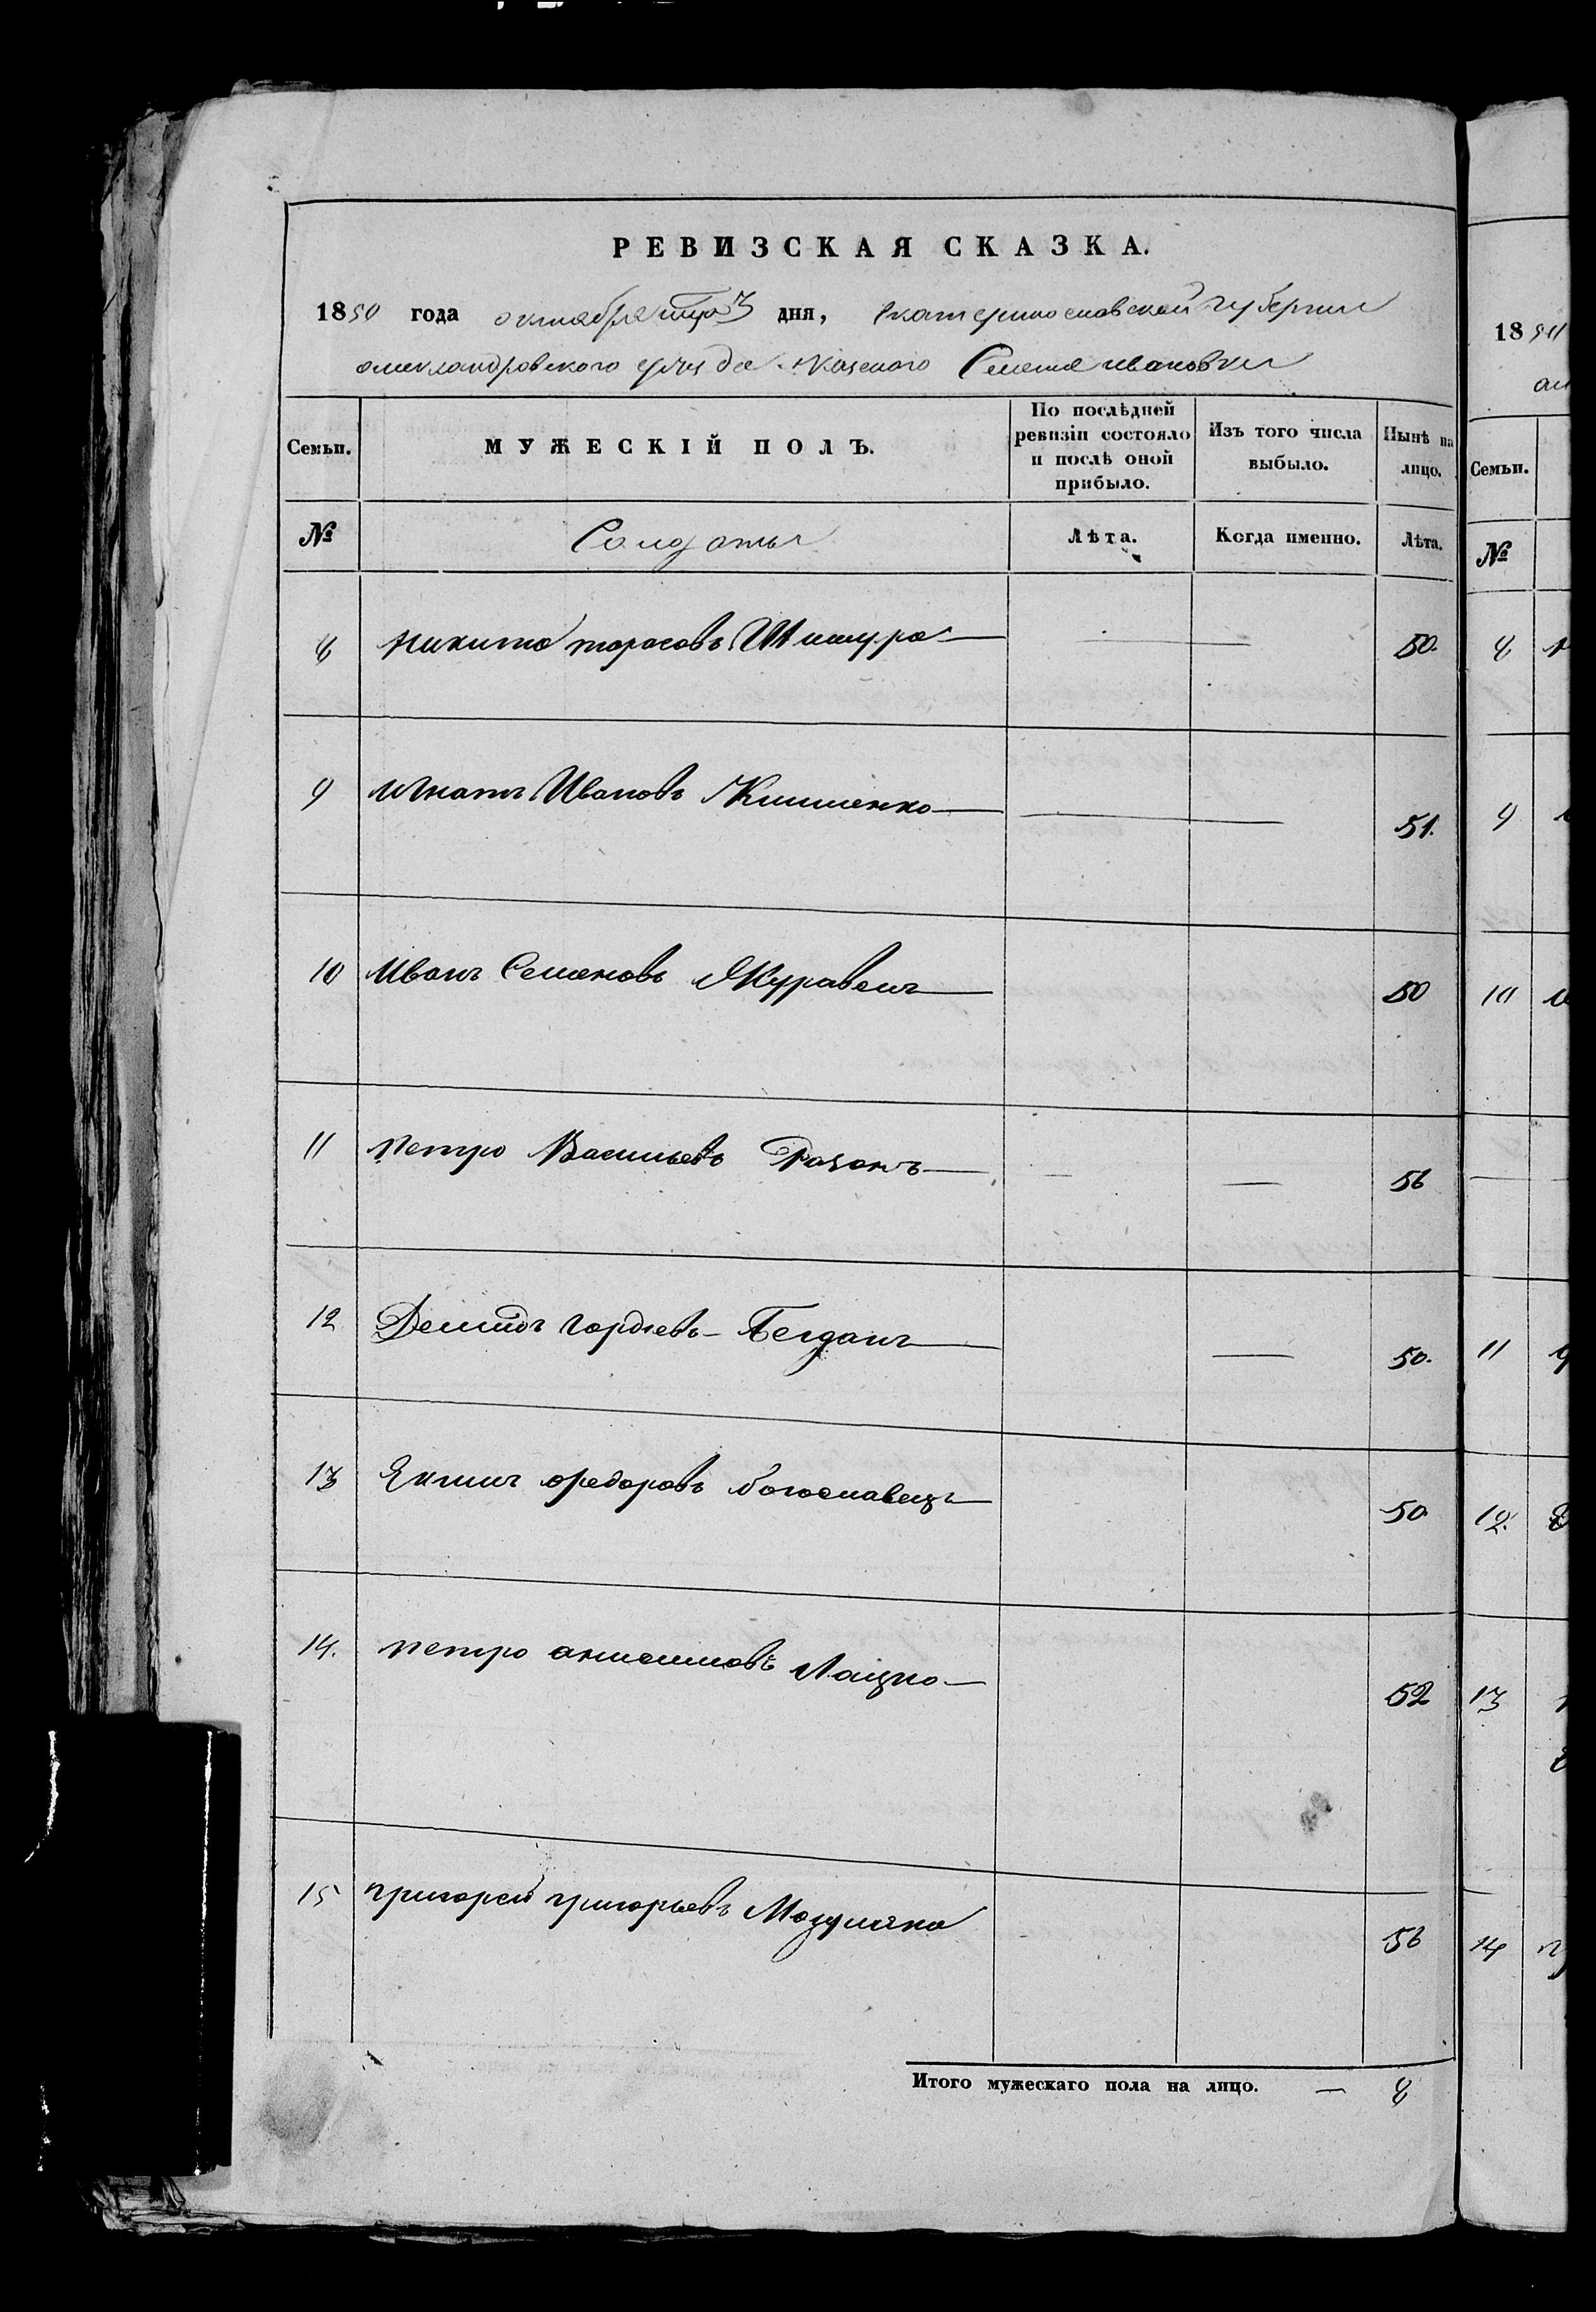 РЕВИЗСКАЯ СКАЗКА.
1850 года октября дня, Екатеринославской губернии
александровского уезда казеного Селения ивановки
Семьи.
МУЖЕСКІЙ ПОЛЪ.
По послѣдней
ревизіи состояло
и послѣ оной
прибыло.
Изъ того числа
выбыло.
Нынѣ на
лицо.
№
Солдаты
Лѣта.
Когда именно.
Лѣта.
8 никита тарасовъ — 50.
9 игнатъ Ивановъ Клименко — 51.
10 иванъ Семеновъ Журавель 50
11 петро Васильевъ — 56
12 Демидъ гордіевъ — 50.
13 Якимъ федоровъ богославецъ 50
14. петро 52
15 григорей григорьевъ 56
Итого мужескаго пола на лицо. — 8
18
Семьи.
№
8
9
10
11
12.
13
14